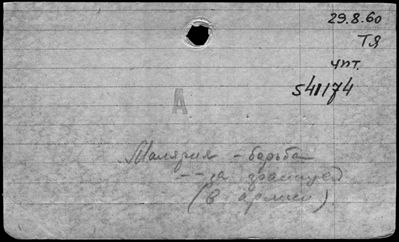 29.8.60
ТЯ
чит.
541174
А
Малярия - борьба
- - за границей
(в армии)